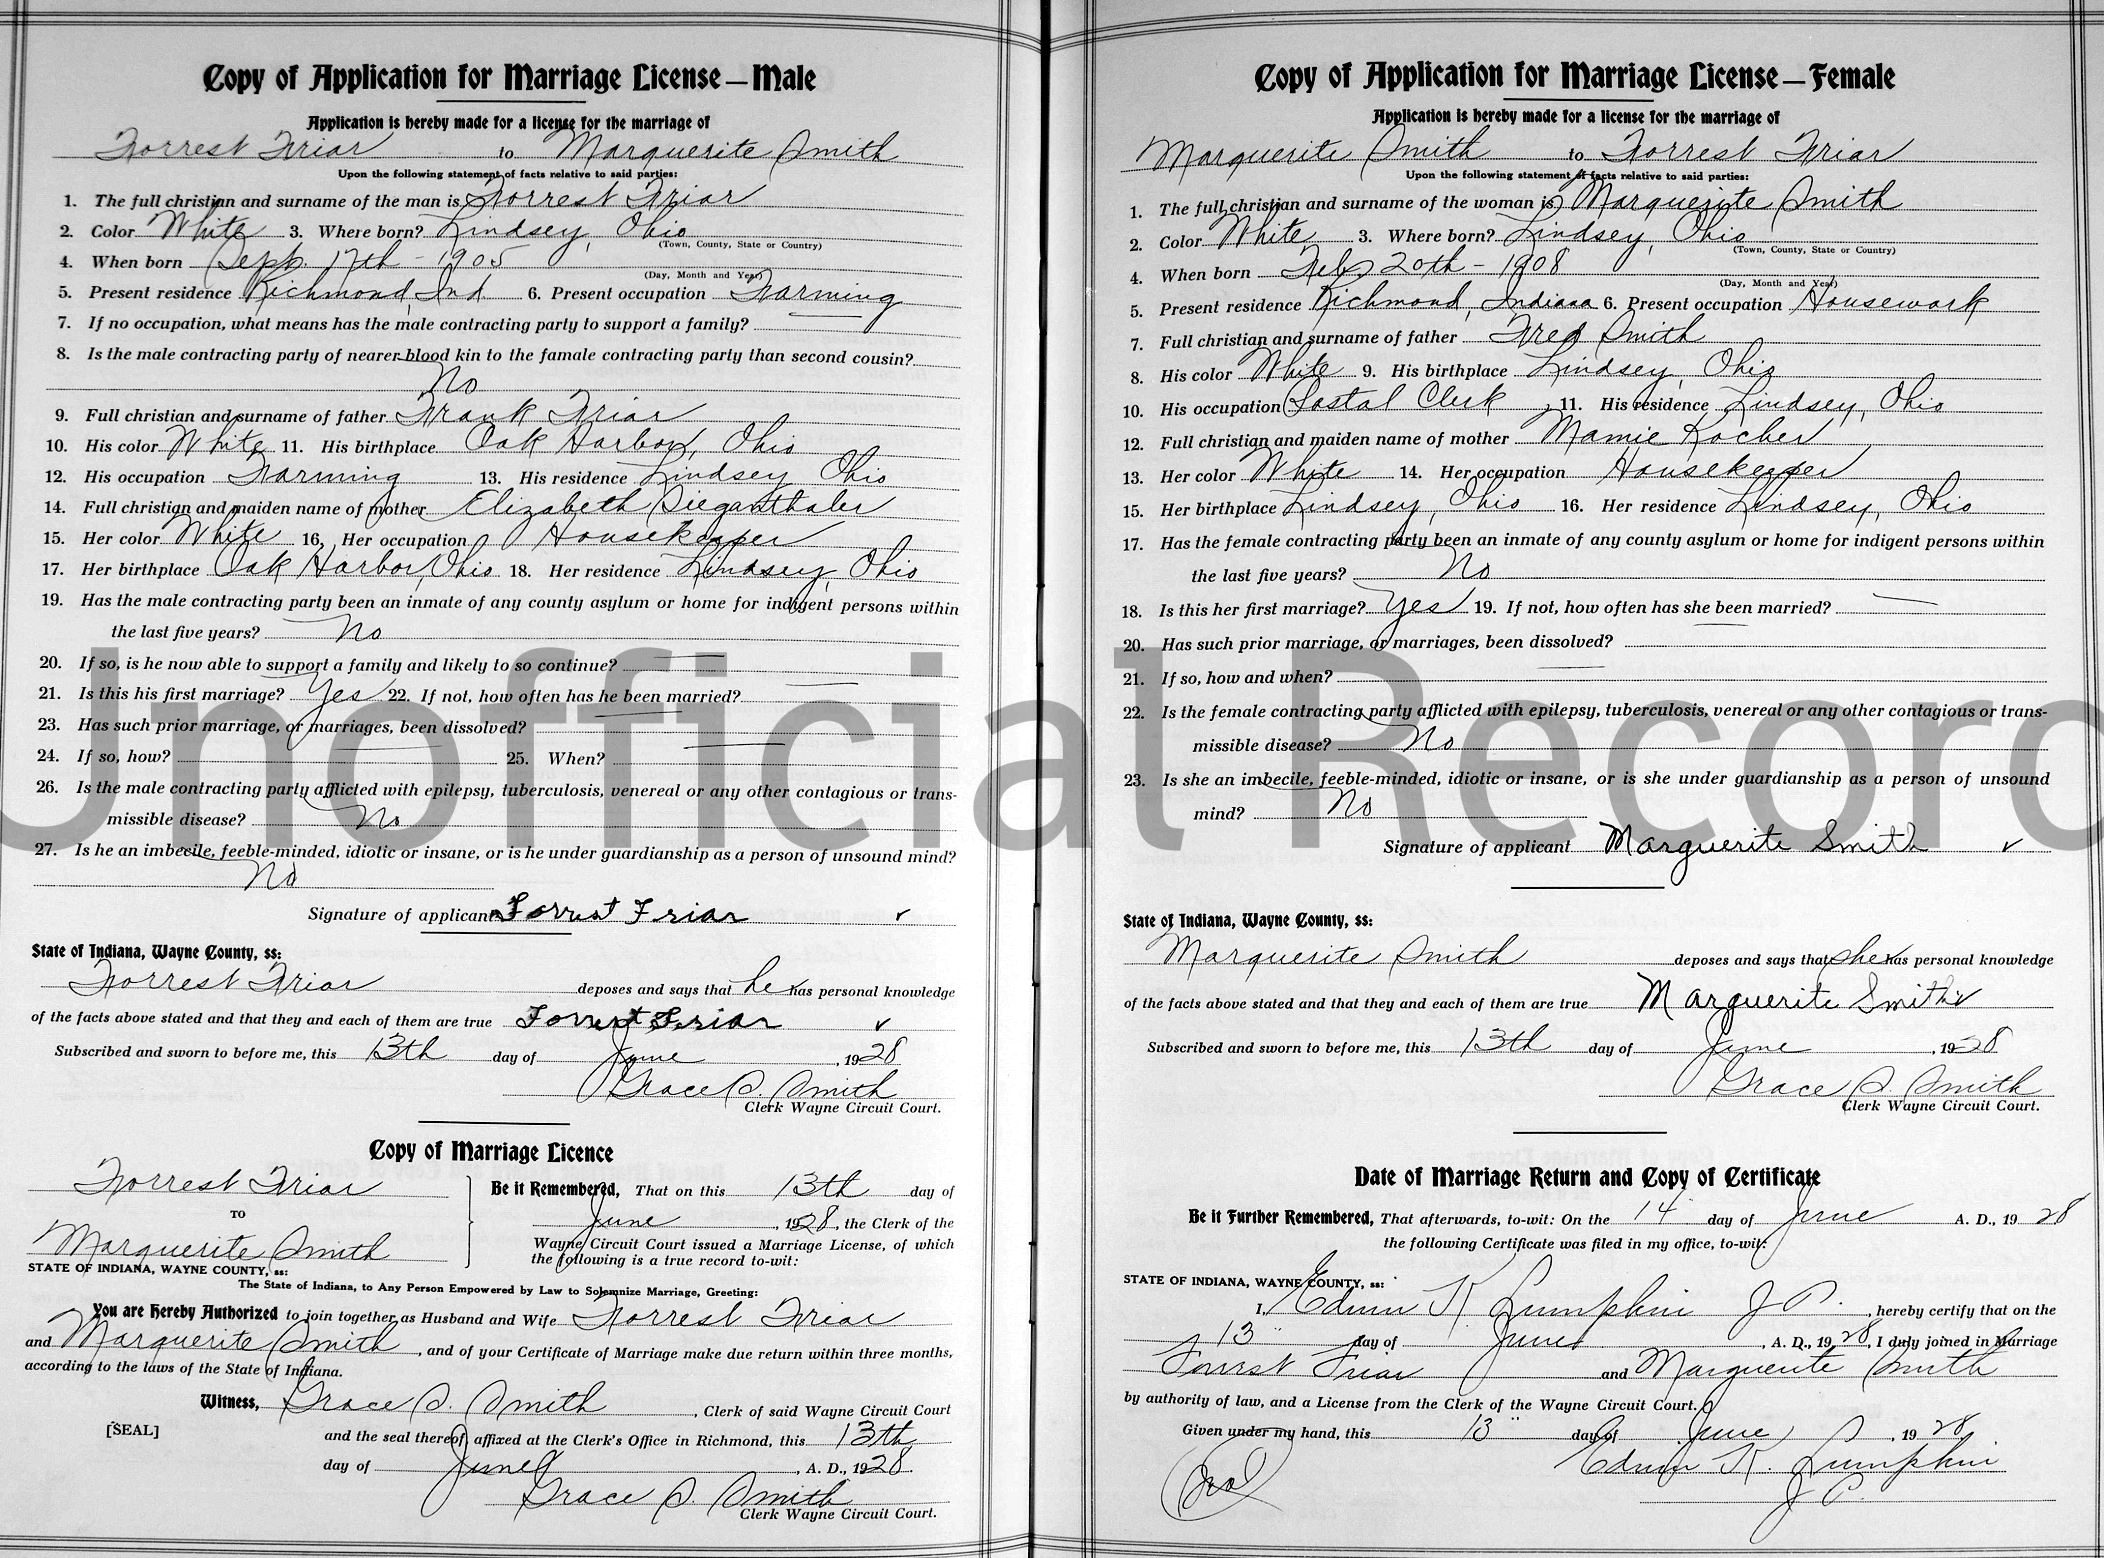 Copy of Application for Marriage License—Male
Application is hereby made for a license for the marriage of
Forrest Friar to Marguerite Smith
Upon the following statement of facts relative to said parties:
1. The full christian and surname of the man is Forrest Friar
2. Color White 3. Where born? Lindsey, Ohio
(Town, County, State or Country)
4. When born Sept. 17th - 1905
(Day, Month and Year)
5. Present residence Richmond, Ind 6. Present occupation Farming
7. If no occupation, what means has the male contracting party to support a family?
8. Is the male contracting party of nearer blood kin to the famale contracting party than second cousin?
No
9. Full christian and surname of father Frank Friar
10. His color White 11. His birthplace Oak Harbor, Ohio
12. His occupation Farming 13. His residence Lindsey Ohio
14. Full christian and maiden name of mother Elizabeth
15. Her color White 16, Her occupation Housekeeper
17. Her birthplace Oak Harbor, Ohio 18. Her residence Lindsey, Ohio
19. Has the male contracting party been an inmate of any county asylum or home for indigent persons within
the last five years? No
20. If so, is he now able to support a family and likely to so continue?
21. Is this his first marriage? Yes 22. If not, how often has he been married?
23. Has such prior marriage, or marriages, been dissolved?
24. If so, how? 25. When?
26. Is the male contracting party afflicted with epilepsy, tuberculosis, venereal or any other contagious or trans-
missible disease? No
27. Is he an imbecile, feeble-minded, idiotic or insane, or is he under guardianship as a person of unsound mind?
No
Signature of applicant Forrest Friar ✓
State of Indiana, Wayne County, ss:
Forrest Friar deposes and says that he has personal knowledge
of the facts above stated and that they and each of them are true Forrest Friar ✓
Subscribed and sworn to before me, this 13th day of June, 1928
Grace S. Smith
Clerk Wayne Circuit Court.
Copy of Marriage Licence
Forrest Friar
TO
Marguerite Smith
Be it Remembered, That on this 13th day of
June, 1928, the Clerk of the
Wayne Circuit Court issued a Marriage License, of which
the following is a true record to-wit:
STATE OF INDIANA, WAYNE COUNTY, ss:
The State of Indiana, to Any Person Empowered by Law to Solemnize Marriage, Greeting:
You are Hereby Authorized to join together as Husband and Wife Forrest Friar
and Marguerite Smith, and of your Certificate of Marriage make due return within three months,
according to the laws of the State of Indiana.
Witness, Grace S. Smith, Clerk of said Wayne Circuit Court
[SEAL] and the seal thereof, affixed at the Clerk's Office in Richmond, this 13th
day of June, A. D., 1928.
Grace S. Smith
Clerk Wayne Circuit Court.
Copy of Application for Marriage License—Female
Application is hereby made for a license for the marriage of
Marguerite Smith to Forrest Friar
Upon the following statement of facts relative to said parties:
1. The full christian and surname of the woman is Marguerite Smith
2. Color White 3. Where born? Lindsey, Ohio
(Town, County, State or Country)
4. When born Feb. 20th - 1908
(Day, Month and Year)
5. Present residence Richmond, Indiana 6. Present occupation Housework
7. Full christian and surname of father Fred Smith
8. His color White 9. His birthplace Lindsey, Ohio
10. His occupation Postal Clerk 11. His residence Lindsey, Ohio
12. Full christian and maiden name of mother Mamie Kocher
13. Her color White 14. Her occupation Housekeeper
15. Her birthplace Lindsey, Ohio 16. Her residence Lindsey, Ohio
17. Has the female contracting party been an inmate of any county asylum or home for indigent persons within
the last five years? No
18. Is this her first marriage? Yes 19. If not, how often has she been married?
20. Has such prior marriage, or marriages, been dissolved?
21. If so, how and when?
22. Is the female contracting party afflicted with epilepsy, tuberculosis, venereal or any other contagious or trans-
missible disease? No
23. Is she an imbecile, feeble-minded, idiotic or insane, or is she under guardianship as a person of unsound
mind? No
Signature of applicant Marguerite Smith ✓
State of Indiana, Wayne County, ss:
Marguerite Smith deposes and says that she has personal knowledge
of the facts above stated and that they and each of them are true Marguerite Smith ✓
Subscribed and sworn to before me, this 13th day of June, 1928
Grace S. Smith
Clerk Wayne Circuit Court.
Date of Marriage Return and Copy of Certificate
Be it Further Remembered, That afterwards, to-wit: On the 14 day of June A. D., 19 28
the following Certificate was filed in my office, to-wit:
STATE OF INDIANA, WAYNE COUNTY, ss:
I, Edwin K. Lumpkin J P., hereby certify that on the
13" day of June, A. D., 1928, I duly joined in Marriage
Forrest Friar and Marguerite Smith
by authority of law, and a License from the Clerk of the Wayne Circuit Court.
Given under my hand, this 13" day of June, 19 28
Edwin K. Lumpkin
J P.
Unofficial Record